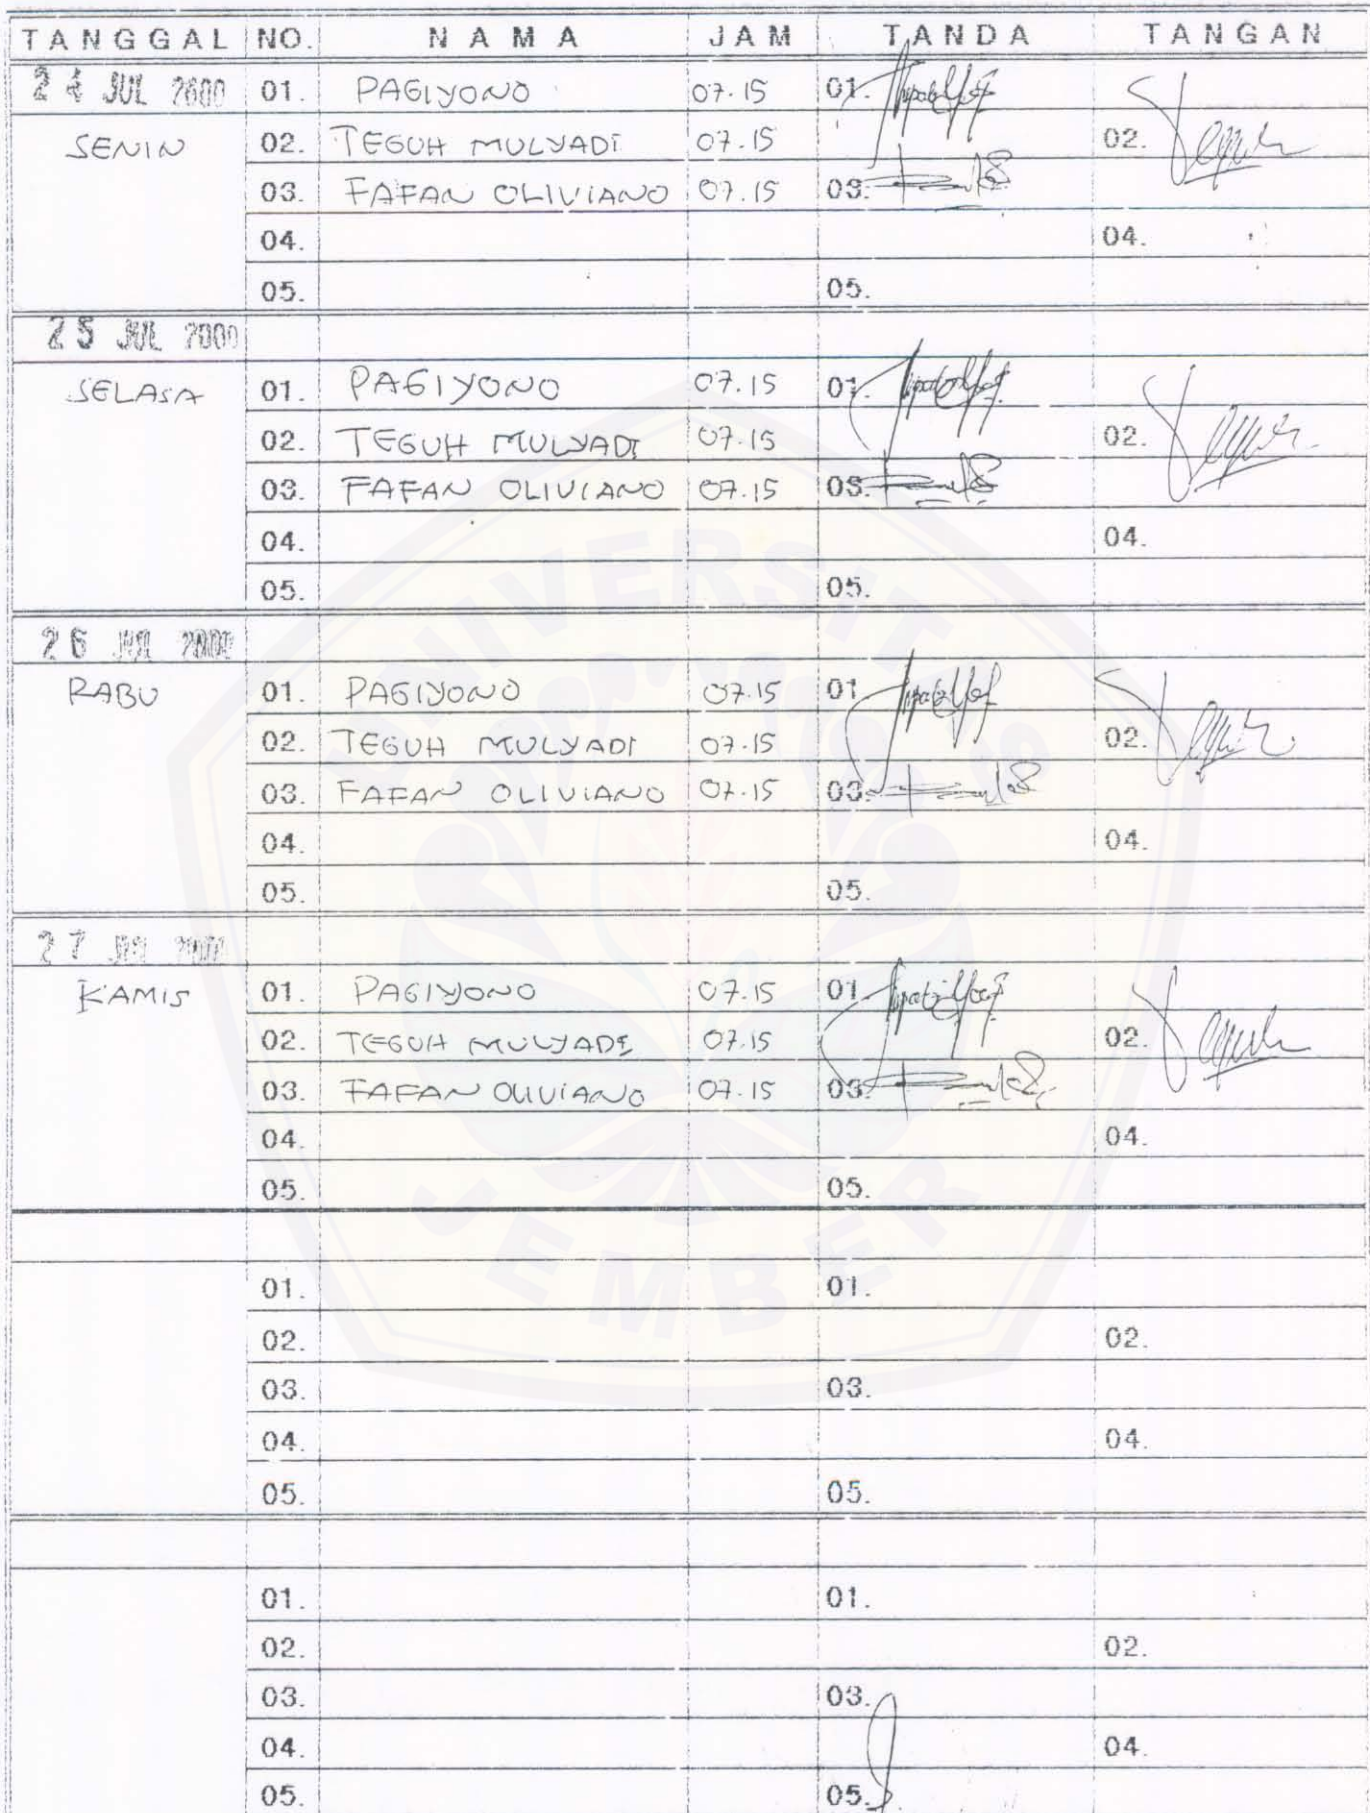 TANGGAL NO. NAMA JAM TANDA TANGAN
24 JUL 2000 01. PAGIYONO 07.15 01.
SENIN 02. TEGUH MULYADI 07.15 02.
03. FAFAN OLIVIANO 07.15 03.
04. 04.
05. 05.
25 JUL 2000
SELASA 01. PAGIYONO 07.15 01.
02. TEGUH MULYADI 07.15 02.
03. FAFAN OLIVIANO 07.15 03.
04. 04.
05. 05.
26 JUL 2000
RABU 01. PAGIYONO 07.15 01
02. TEGUH MULYADI 07.15 02.
03. FAFAN OLIVIANO 07.15 03.
04. 04.
05. 05.
27 JUL 2000
KAMIS 01. PAGIYONO 07.15 01
02. TEGUH MULYADI 07.15 02.
03. FAFAN OLIVIANO 07.15 03.
04. 04.
05. 05.
01. 01.
02. 02.
03. 03.
04. 04.
05. 05.
01. 01.
02. 02.
03. 03.
04. 04.
05. 05.
UNIVERSITAS
JEMBER